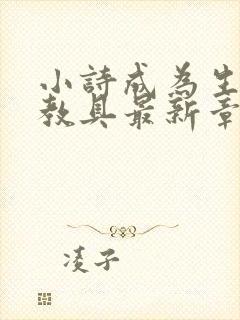 小詩成為生
教具最新章
凌子